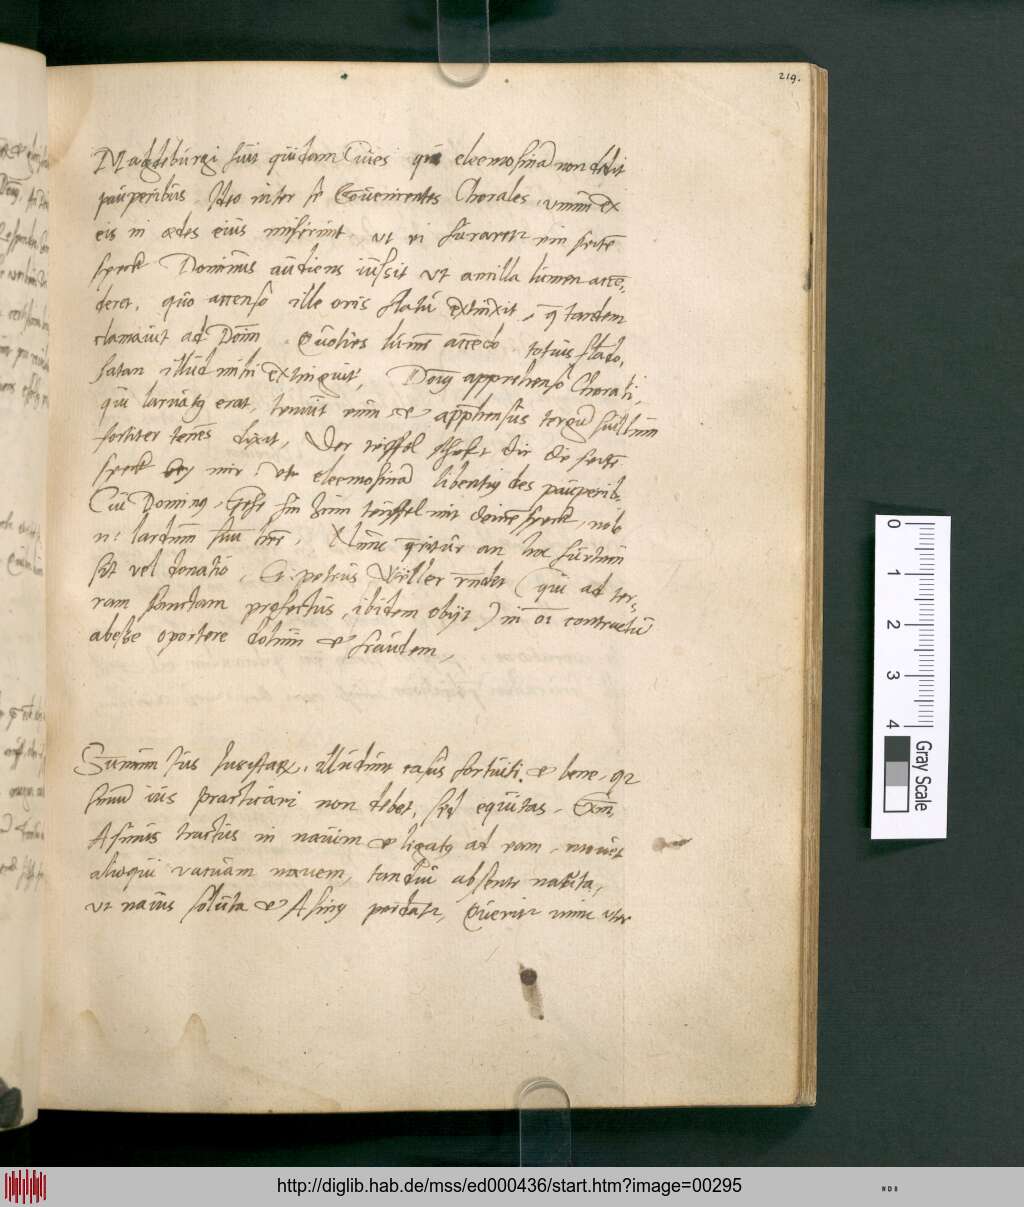 219.
Magdeburgi fuit quidam Cives qui eleemosinā non dedit
pauperibus. Ideo inter se Convenientes Chorales, unum ex
eis in ædes eius miserunt ut ei furaretr ein seitē
speck Dominus audiens iussit ut ancilla lumen accē,
deret, quo accenso ille oris flatu extinxit, tandem
clamavit ad Dom̄ Quoties lumē accēdo totius
satan illud mihi extinguit, Doīg apprehenso Chorali,
qui larvatg erat, tenuit eum et apprehensus tergū suillum
fortiter tenēs dixit, Der teyffel schickt dir die seitē
speck bey mir: ut eleemosinā libentig des pauperib.
Cui Doming, Gehe hin zum teuffel mit deinē speck, nob
n: lardum . Nunc qritur an hoc furtum
sit vel donatio, Et petrus Willer rn̄det (qui ad ter-
ram sanctam profectus, ibidem obijt) in oī contractu
abesse oportere dolum et fraudem,
Summū Ius Iuristarꝝ, illudunt casus fortuiti. et bene, qr
summū ius practicari non debet, sed equitas. Exm,
Asinus tractus in navim et ligatg ad ram, movet
alioqui vacuam navem, tandiu absente nauta,
ut navis soluta et Asing perdatr, Queritr nunc uter
0
1
2
3
4
Gray Scale
http://diglib.hab.de/mss/ed000436/start.htm?image=00295